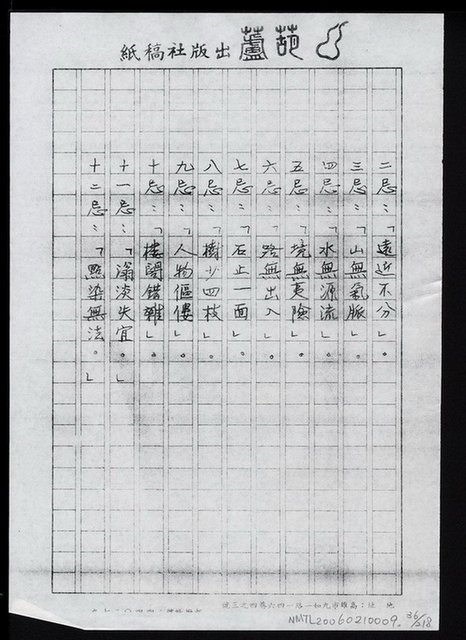 葫蘆出版社稿紙
二忌：「遠近不分」。
三忌：「山無氣脈」。
四忌：「水無源流」。
五忌：「境無夷險」。
六忌：「路無出入」。
七忌：「石止一面」。
八忌：「樹少四枝」。
九忌：「人物傴僂」。
十忌：「樓閣錯雜」。
十一忌：「滃淡失宜。」
十二忌：「點染無法。」
地址：高雄市九如一路一四六巷四之三號
NMTL20060210009.
36/218